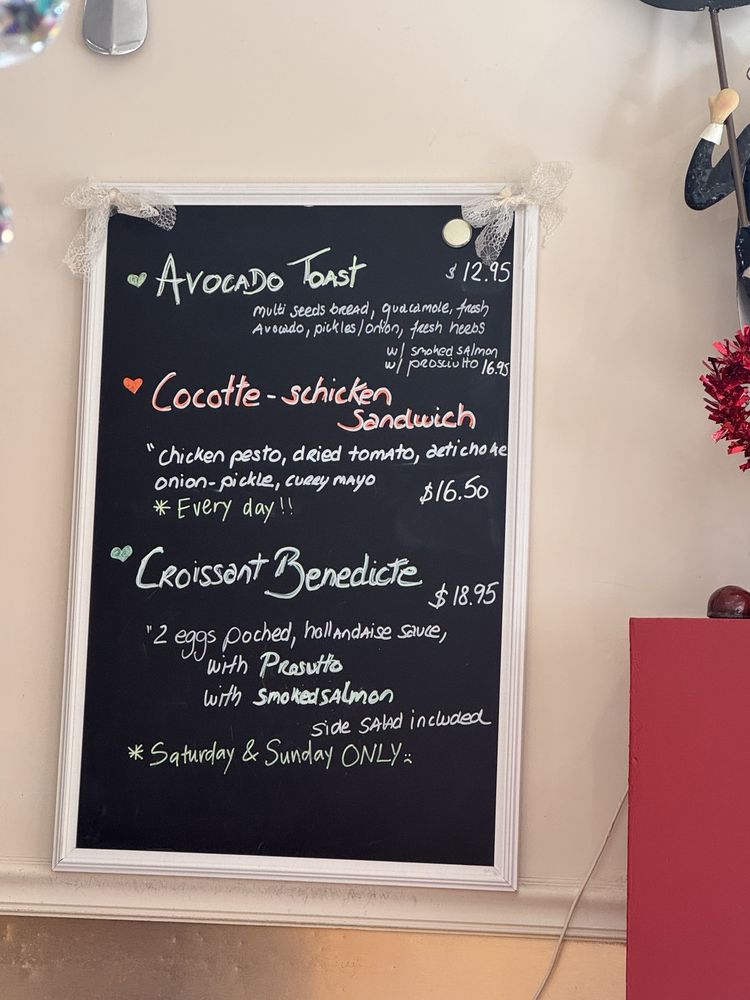 AVOCADO TOAST $12.95
multi seeds bread, guacamole, fresh
Avocado, pickles/onion, fresh herbs
w/ smoked salmon
w/ prosciutto 16.95
Cocotte-schicken
Sandwich
"chicken pesto, dried tomato, artichoke
onion-pickle, curry mayo
$16.50
* Every day!!
Croissant Benedicte
$18.95
"2 eggs poched, hollandaise sauce,
with Prosutto
with smoked salmon
side salad included
* Saturday & Sunday ONLY